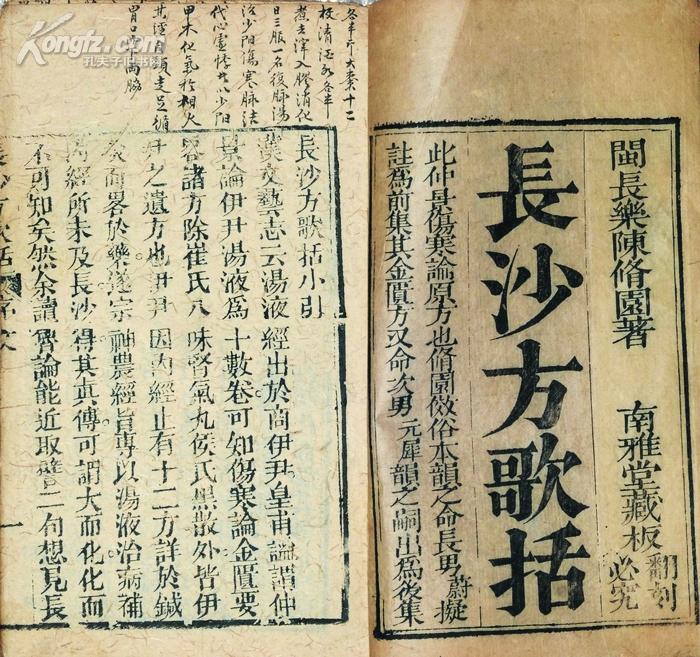 閩長樂陳脩園著
南雅堂藏板
翻刻
必究
長沙方歌括
此仲景傷寒論原方也脩園倣俗本韻之命長男蔚擬
註為前集其金匱方又命次男元犀韻之嗣出為後集
各半斤大棗十二
枚清酒水各半
煮去滓入膠消化
日三服一名復脉湯
治少陽傷寒脉結
代心虛悸少陽
甲木化氣於相火
其經自頭走足循
胃口下兩脇
長沙方歌括小引
漢文藝志云湯液經出於商伊尹皇甫謐謂仲
景論伊尹湯液為十數卷可知傷寒論金匱要
畧諸方除崔氏八味腎氣丸侯氏黑散外皆伊
尹之遺方也伊尹因內經止有十二方詳於鍼
灸而畧於藥遂宗神農經旨專以湯液治病補
內經所未及長沙得其真傳可謂大而化化而
不可知矣然余讀魯論能近取譬二句想見長
長沙方歌括
一
Kongfz.com
孔夫子旧书网